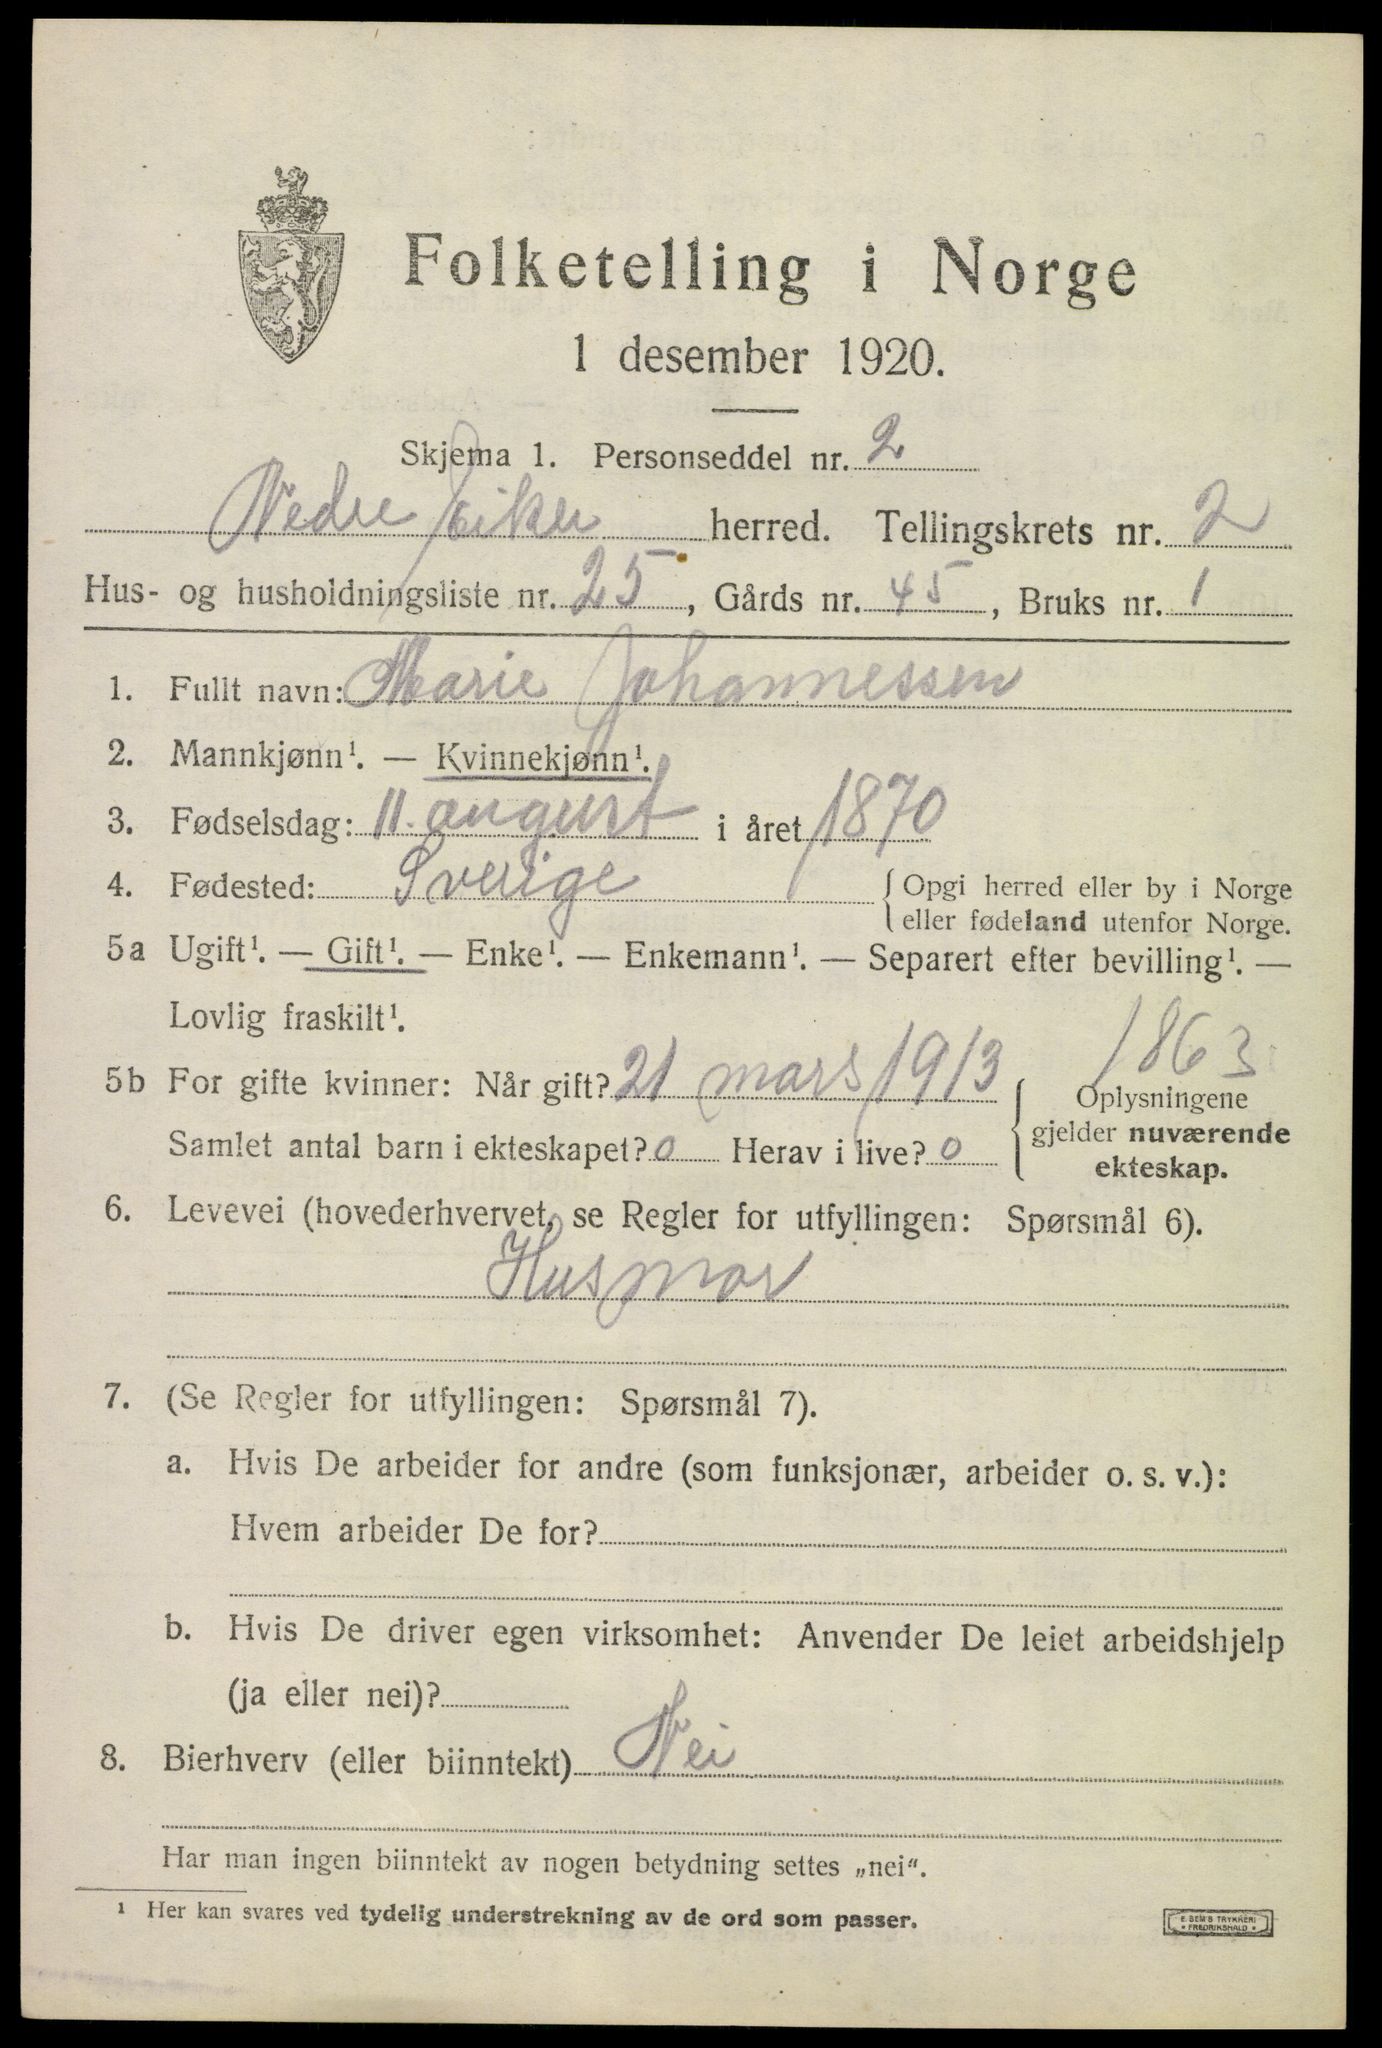 Folketelling i Norge
1 desember 1920.
Skjema 1. Personseddel nr. 2
Nedre Eiker herred. Tellingskrets nr. 2
Hus- og husholdningsliste nr. 25, Gårds nr. 45, Bruks nr. 1
1. Fullt navn: Marie Johannessen
2. Mannkjønn¹. — Kvinnekjønn¹.
3. Fødselsdag: 11. august i året 1870
4. Fødested: Sverige { Opgi herred eller by i Norge
eller fødeland utenfor Norge.
5a Ugift¹. — Gift¹. — Enke¹. — Enkemann¹. — Separert efter bevilling¹. —
Lovlig fraskilt¹.
1863
5b For gifte kvinner: Når gift? 21 mars 1913
Samlet antal barn i ekteskapet? 0 Herav i live? 0
{ Oplysningene
gjelder nuværende
ekteskap.
6. Levevei (hovederhvervet, se Regler for utfyllingen: Spørsmål 6).
Husmor
7. (Se Regler for utfyllingen: Spørsmål 7).
a. Hvis De arbeider for andre (som funksjonær, arbeider o. s. v.):
Hvem arbeider De for?
b. Hvis De driver egen virksomhet: Anvender De leiet arbeidshjelp
(ja eller nei)?
8. Bierhverv (eller biinntekt) Nei
Har man ingen biinntekt av nogen betydning settes „nei“.
¹ Her kan svares ved tydelig understrekning av de ord som passer.
E. SEM'S TRYKKERI
* FREDRIKSHALD *